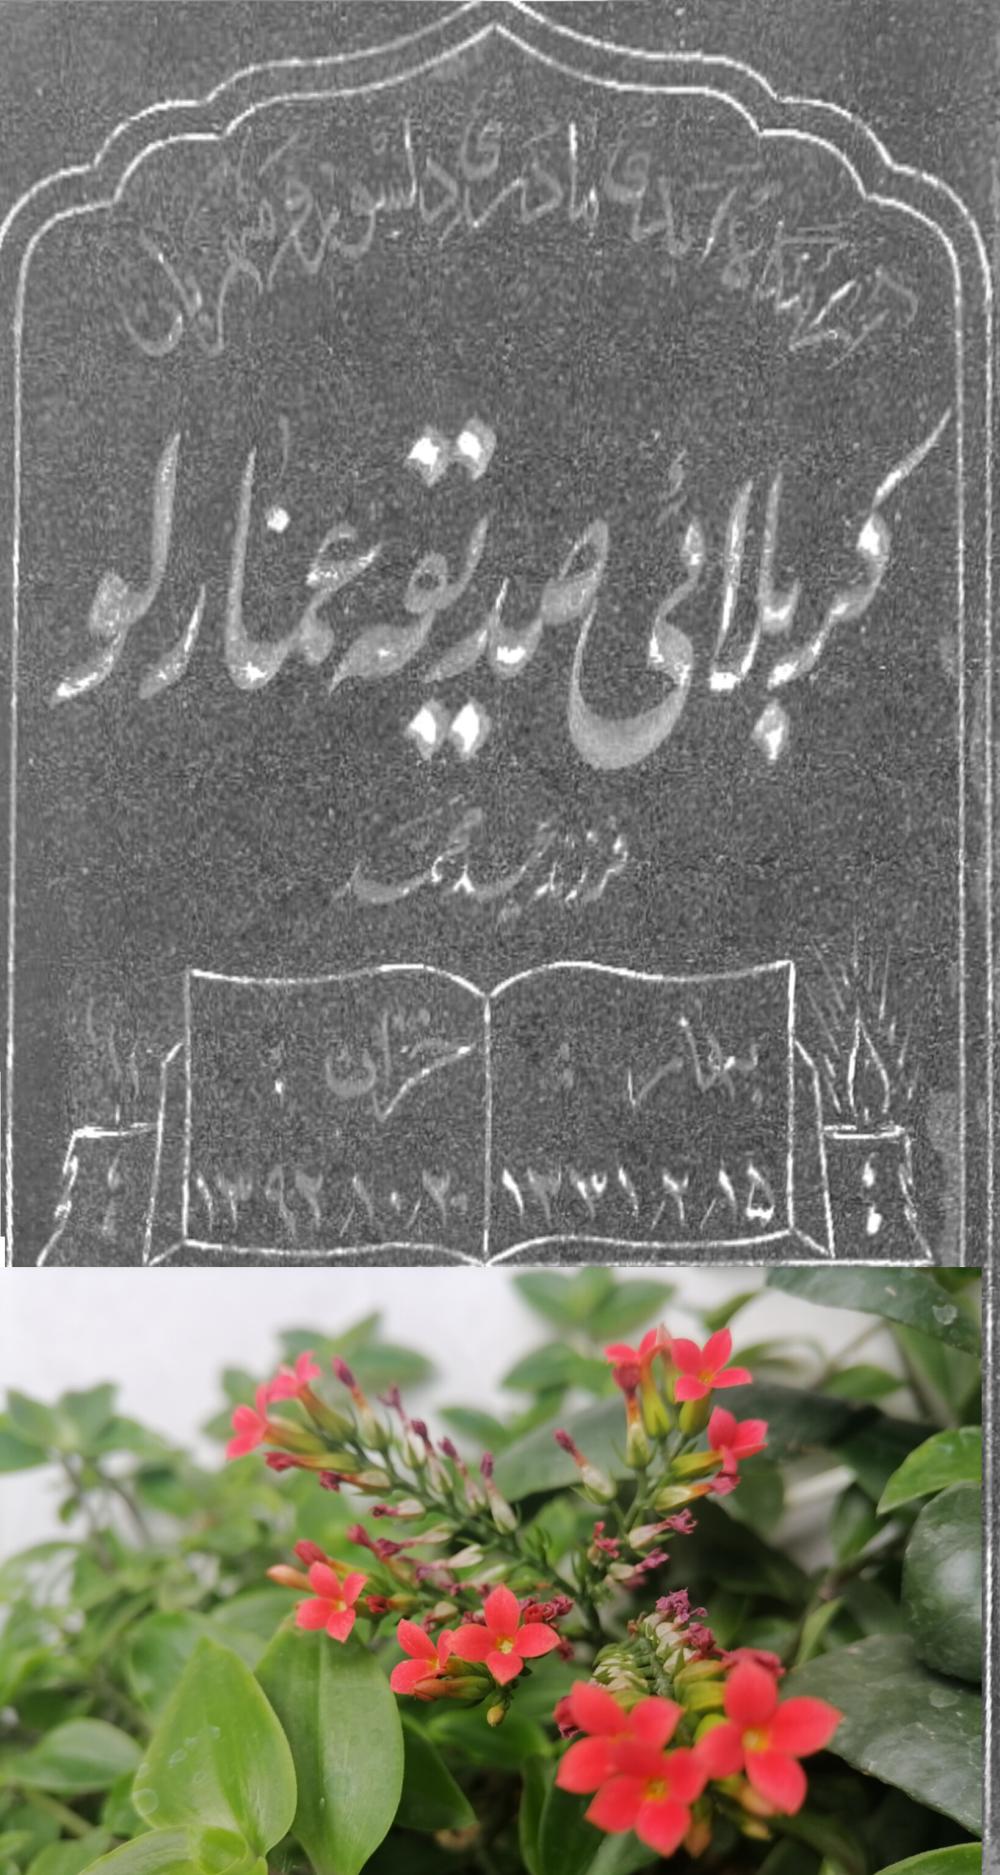 آرامگاه ابدی مادری دلسوز و مهربان
کربلائی صدیقه عمارلو
فرزند سید محمد
بهار خزان
۱۳۳۱٫۲٫۱۵ ۱۳۹۲٫۱۰٫۲۰